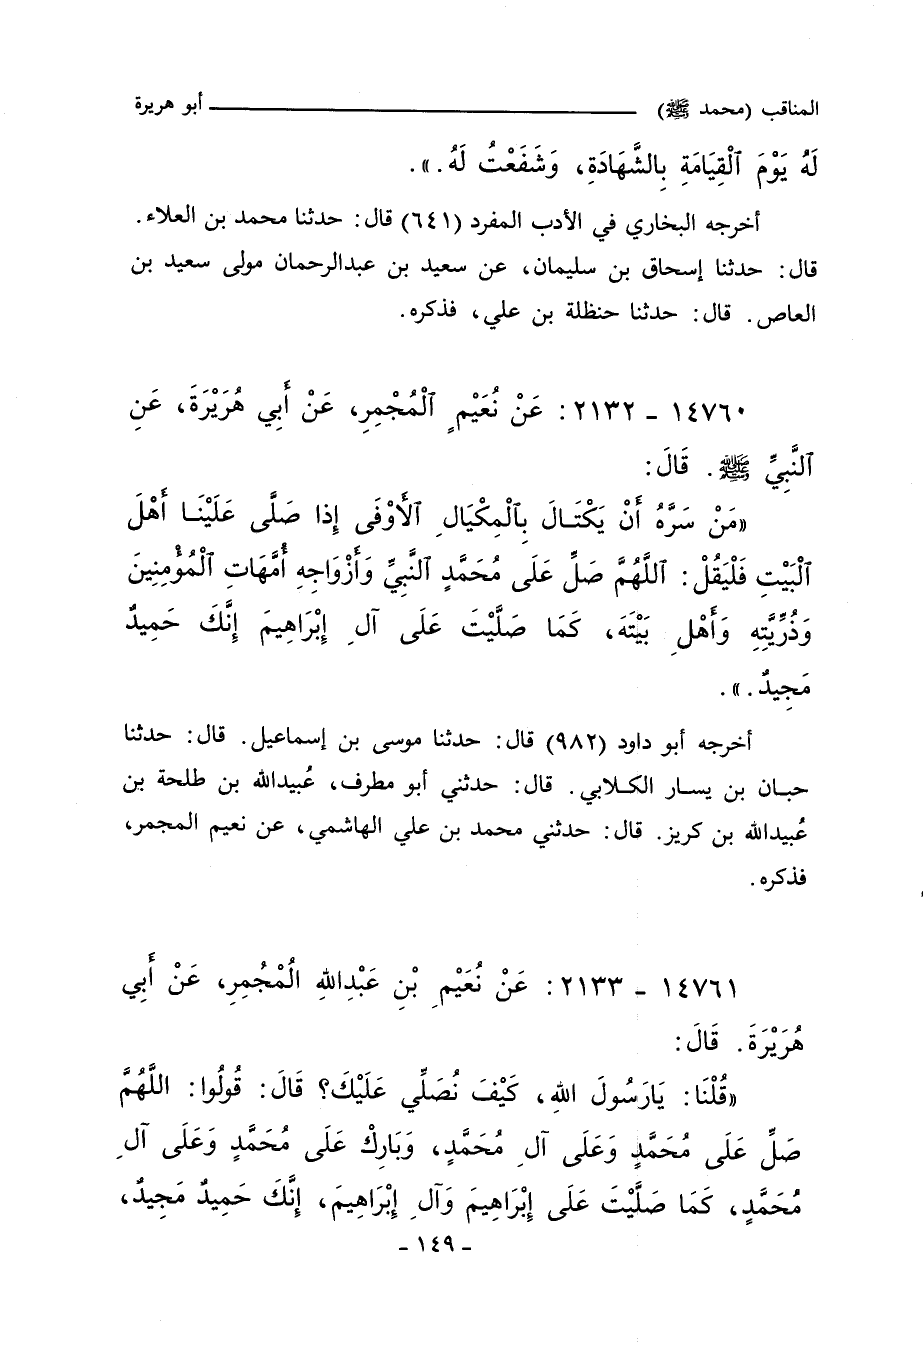 المناقب (محمد ﷺ) ـــــــ أبو هريرة
لَهُ يَوْمَ ٱلْقِيَامَةِ بِالشَّهَادَةِ، وَشَفَعْتُ لَهُ.».
أخرجه البخاري في الأدب المفرد (٦٤١) قال: حدثنا محمد بن العلاء.
قال: حدثنا إسحاق بن سليمان، عن سعيد بن عبدالرحمان مولى سعيد بن
العاص. قال: حدثنا حنظلة بن علي، فذكره.
١٤٧٦٠ - ٢١٣٢: عَنْ نُعَيْمٍ ٱلْمُجْمِرِ، عَنْ أَبِي هُرَيْرَةَ، عَنِ
ٱلنَّبِيِّ ﷺ. قَالَ:
«مَنْ سَرَّهُ أَنْ يَكْتَالَ بِٱلْمِكْيَالِ ٱلأَوْفَى إِذا صَلَّى عَلَيْنَا أَهْلَ
ٱلْبَيْتِ فَلْيَقُلْ: ٱللَّهُمَّ صَلِّ عَلَى مُحَمَّدٍ ٱلنَّبِيِّ وَأَزْوَاجِهِ أُمَّهَاتِ ٱلْمُؤْمِنِينَ
وَذُرِّيَّتِهِ وَأَهْلِ بَيْتَهِ، كَمَا صَلَّيْتَ عَلَى آلِ إِبْرَاهِيمَ إِنَّكَ حَمِيدٌ
مَجِيدٌ.».
أخرجه أبو داود (٩٨٢) قال: حدثنا موسى بن إسماعيل. قال: حدثنا
حبان بن يسار الكلابي. قال: حدثني أبو مطرف، عُبيدالله بن طلحة بن
عُبيدالله بن كريز. قال: حدثني محمد بن علي الهاشمي، عن نعيم المجمر،
فذكره.
١٤٧٦١ - ٢١٣٣: عَنْ نُعَيْمِ بْنِ عَبْدِاللهِ الْمُجْمِرِ، عَنْ أَبِي
هُرَيْرَةَ. قَالَ:
«قُلْنَا: يَارَسُولَ اللهِ، كَيْفَ نُصَلِّي عَلَيْكَ؟ قَالَ: قُولُوا: اللَّهُمَّ
صَلِّ عَلَى مُحَمَّدٍ وَعَلَى آلِ مُحَمَّدٍ، وَبَارِكْ عَلَى مُحَمَّدٍ وَعَلَى آلِ
مُحَمَّدٍ، كَمَا صَلَّيْتَ عَلَى إِبْرَاهِيمَ وَآلِ إِبْرَاهِيمَ، إِنَّكَ حَمِيدٌ مَجِيدٌ،
- ١٤٩ -